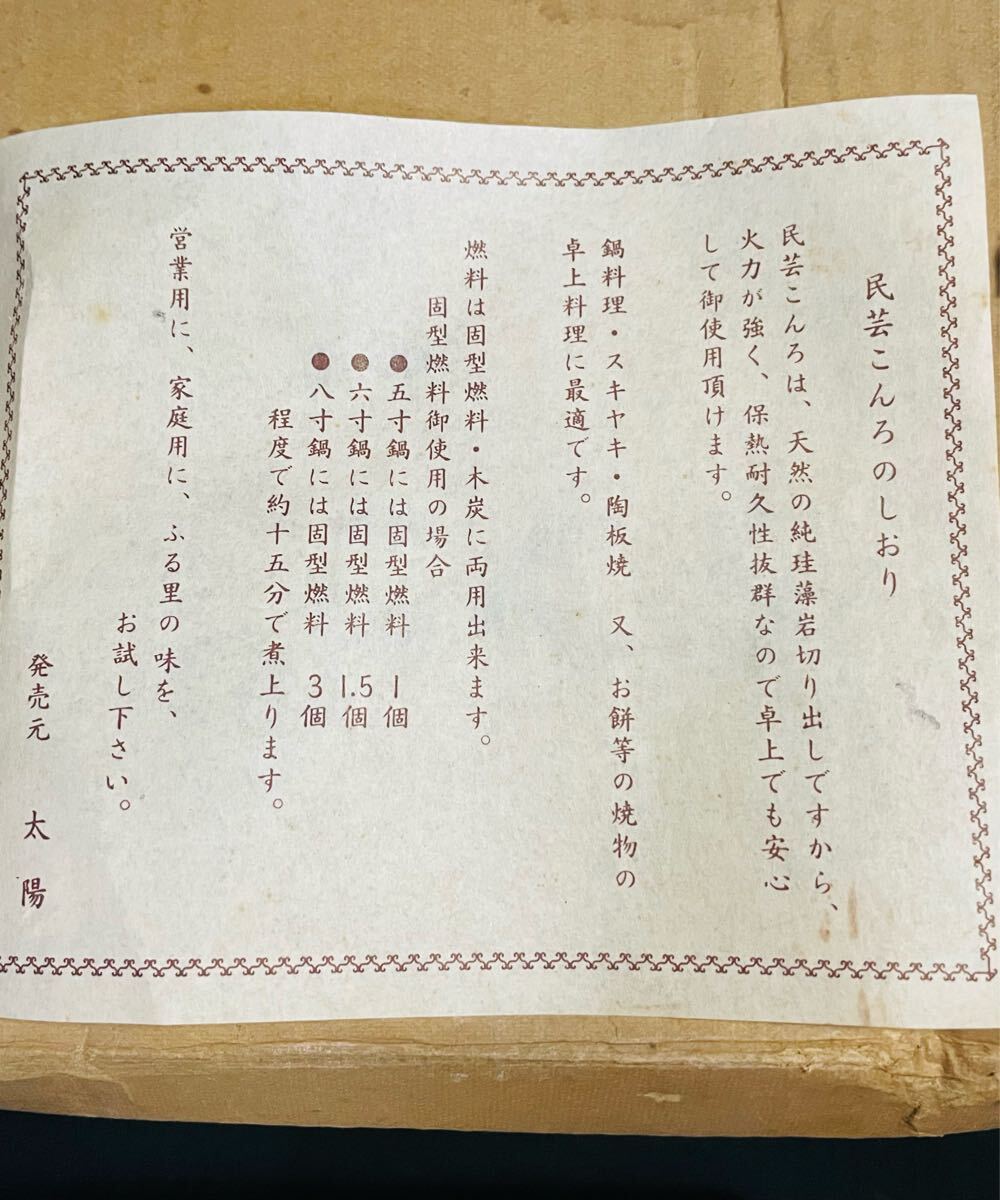 民芸こんろのしおり
民芸こんろは、天然の純珪藻岩切り出しですから、
火力が強く、保熱耐久性抜群なので卓上でも安心
して御使用頂けます。
鍋料理・スキヤキ・陶板焼 又、お餅等の焼物の
卓上料理に最適です。
燃料は固型燃料・木炭に両用出来ます。
固型燃料御使用の場合
●五寸鍋には固型燃料 1個
●六寸鍋には固型燃料 1.5個
●八寸鍋には固型燃料 3個
程度で約十五分で煮上ります。
営業用に、家庭用に、ふる里の味を、
お試し下さい。
発売元 太陽